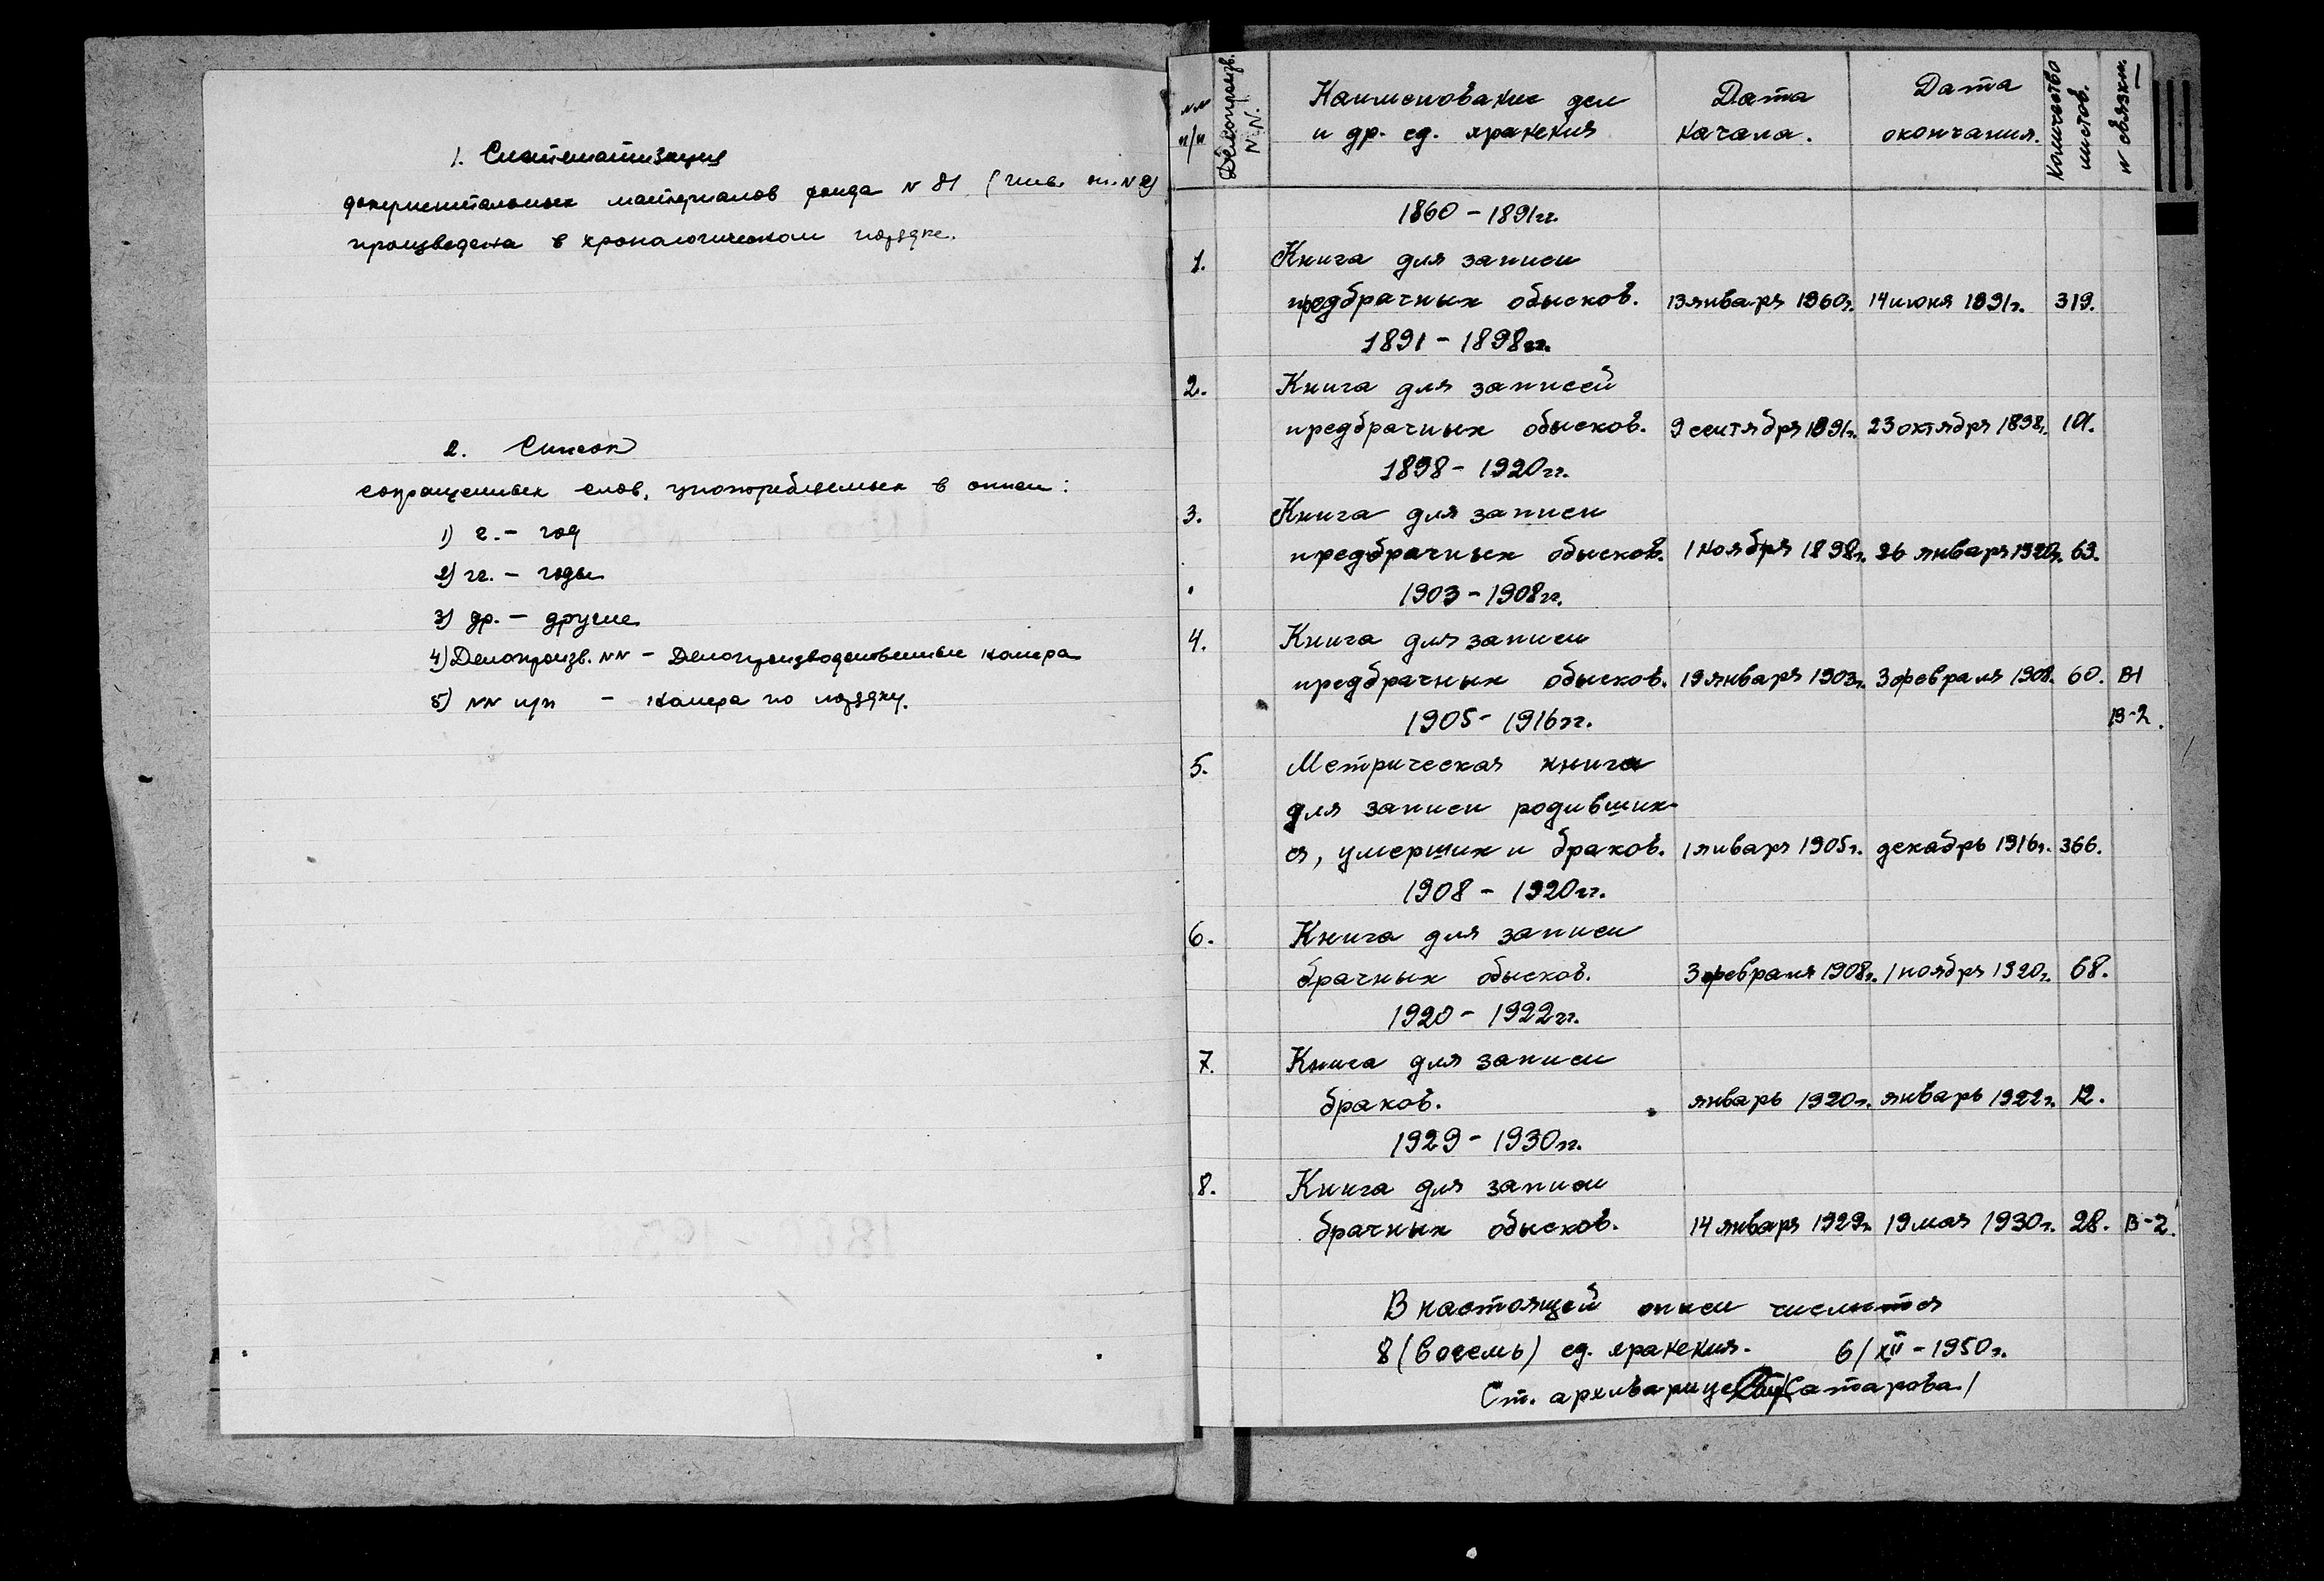 1. Систематизация
документальных материалов фонда N 81 (инв. оп. N 2)
произведена в хронологическом порядке.
2. Список
сокращенных слов, употребляемых в описи:
1) г. – год
2) гг. – годы
3) др. – другие
4) Делопроизв. NN – Делопроизводственные номера
5) NN п/п – номера по порядку.
NN п/п
Делопроизв. N.N.
Наименование дел
и др. ед. хранения
Дата
начала.
Дата
окончания.
Количество
листов.
N связки.
1860 – 1891 гг.
1. Книга для записи
предбрачных обысков. 13 января 1960г. 14 июня 1891г. 319.
1891 – 1898 гг.
2. Книга для записей
предбрачных обысков. 9 сентября 1891г. 23 октября 1898г.
1898 – 1920 гг.
3. Книга для записи
предбрачных обысков. 1 ноября 1898г. 26 января 1920г. 63.
1903 – 1908 гг.
4. Книга для записи
предбрачных обысков. 19 января 1903г. 3 февраля 1908. 60. В-1
В-2.
1905 – 1916 гг.
5. Метрическая книга
для записи родивших-
ся, умерших и браков. 1 января 1905г. декабрь 1916г. 366.
1908 – 1920 гг.
6. Книга для записи
брачных обысков. 3 февраля 1908г. 1 ноября 1920г. 68.
1920 – 1922 гг.
7. Книга для записи
браков. январь 1920г. январь 1922г. 12.
1929 – 1930 гг.
8. Книга для записи
брачных обысков. 14 января 1929г. 19 мая 1930г. 28. В-2.
В настоящей описи числится
8 (восемь) ед. хранения. 6/XII – 1950г.
Ст. архивариус /Сатарова/